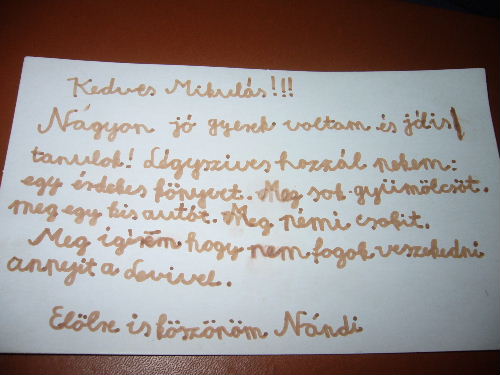 Kedves Mikulás!!!
Nágyon jó gyerek voltam és jólis
tanulok! Légyszives hozzál nekem:
egy érdekes könyvet. Meg sok gyümölcsöt.
meg egy kis autót. Meg némi csokit.
Meg igérem hogy nem fogok veszekedni
annyit a devivel.
Előlre is köszönöm Nándi